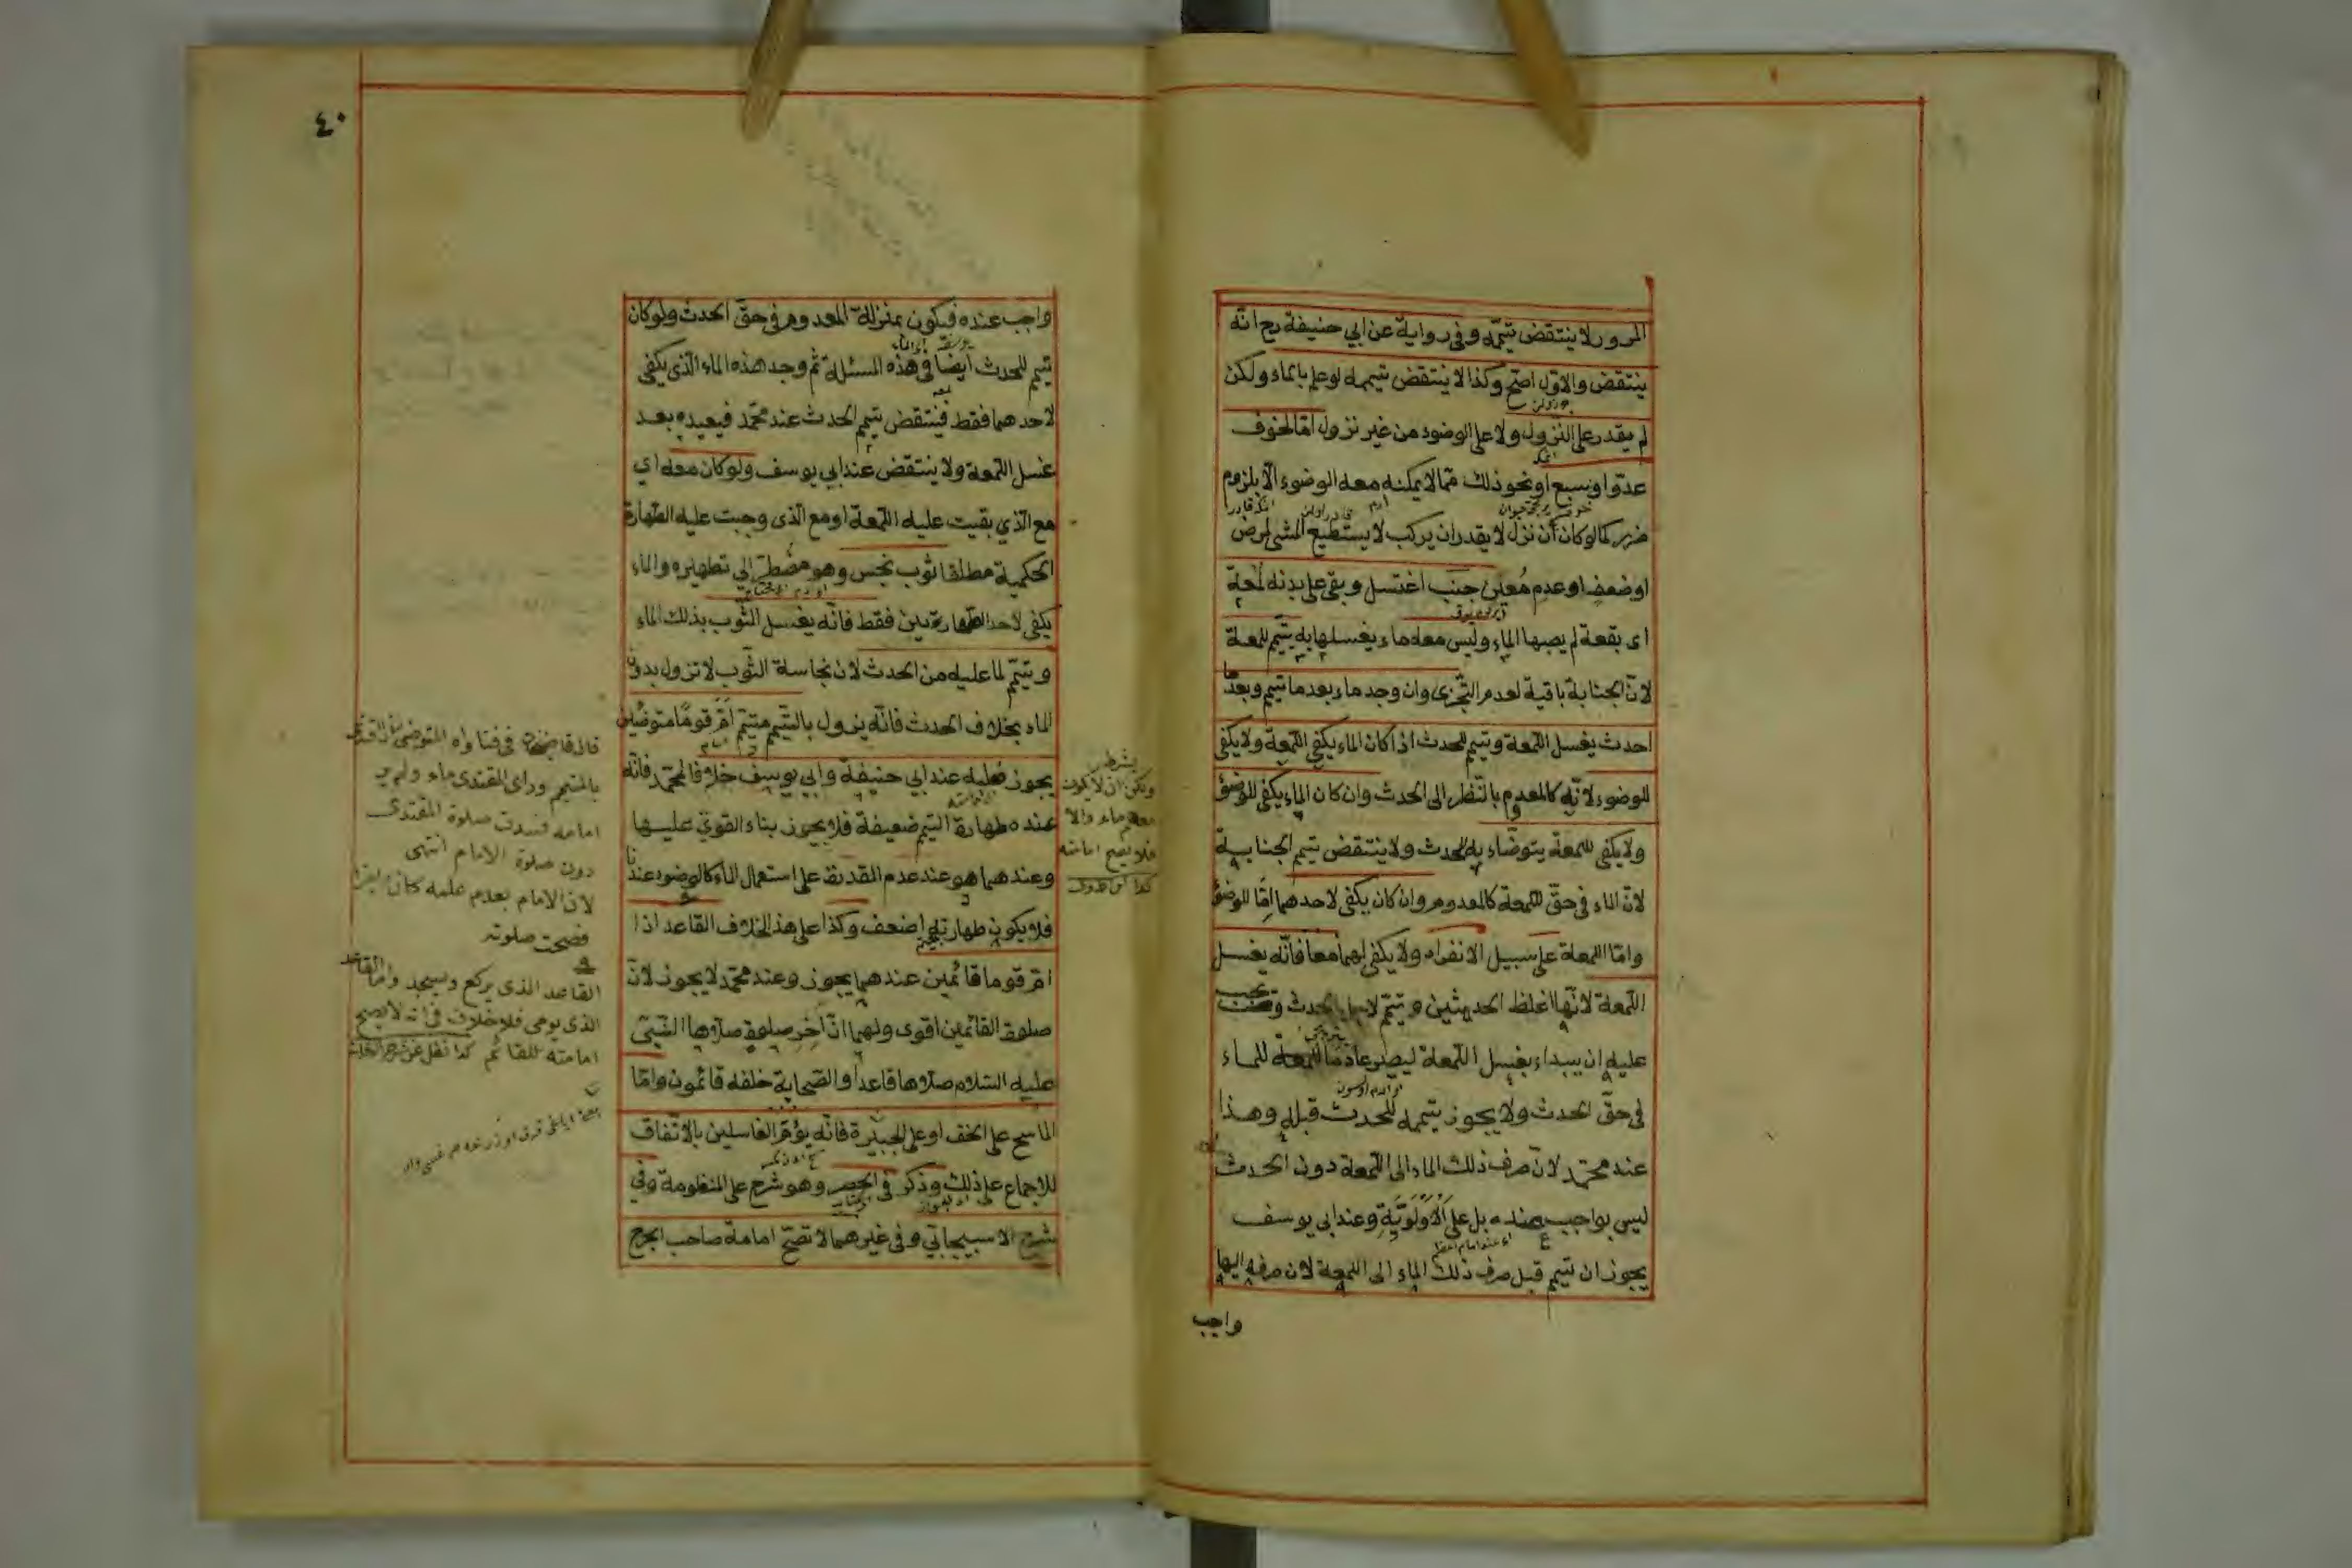 المرور لا ينتقض تيمّمه وفي رواية عن ابي حنيفة رح انّه
ينتقض والاوّل اصحّ وكذا لا ينتقض تيممه لو علم بالماء ولكن
لم يقدر على النزول ولا على الوضوء من غير نزول امّا لخوف
عدوّ او سبع او نحو ذلك ممّا لا يمكنه معه الوضوء الّا بلزوم
ضرر كما لو كان ان نزل لا يقدر ان يركب لا يستطيع المشي لمرض
او ضعف او عدم مُعين جنب اغتسل وبقي على بدنه لُمعة
اى بقعة لم يصبها الماء وليس معه ماء يغسلها به يتيمّم للمعة
لانّ الجنابة باقية لعدم التّجزى وان وجد ماء بعد ما تيمم وبعد ما
احدث يغسل اللّمعة وتيمم للحدث اذا كان الماء يكفي اللّمعة ولا يكفي
للوضوء لانّه كالمعدوم بالنّظر الى الحدث وان كان الماء يكفي للوضوء
ولا يكفي للمعة يتوضّاء به للحدث ولا ينتقض تيمم الجنابة
لانّ الماء في حقّ اللمعة كالمعدوم وان كان يكفي لاحدهما امّا للوضوء
وامّا اللمعة على سبيل الانفراد ولا يكفي لهما معا فانّه يغسل
اللّمعة لانّها اغلظ الحدثين وتيمّم الحدث ويجب
عليه ان يبداء بغسل اللّمعة ليصير عادمًا للماء
في حقّ الحدث ولا يجوز تيممه للحدث قبله وهذا
عند محمّد لانّ صرف ذلك الماء الى اللّمعة دون الحدث
ليس بواجب عنده بل على الاَوْلَوِيَّةِ وعند ابي يوسف
يجوز ان تيمم قبل صرف ذلك الماء الى اللمعة لان صرفه اليها
واجب
٤٠
واجب عنده فيكون بمنزلة المعدوم في حقّ الحدث ولو كان
تيمم للحدث ايضا في هذه المسئلة ثم وجد هذه الماء الّذى يكفي
لاحدهما فقط فينتقض تيمم الحدث عند محمّد فيعيده بعد
غسل اللّمعة ولا ينتقض عند ابي يوسف ولو كان معه اي
مع الّذي بقيت عليه اللّمعة او مع الّذى وجبت عليه الطّهارة
الحكمية مطلقا ثوب نجس وهو مضطرّ الى تطهيره والماء
يكفي لاحد الطّهارتين فقط فانّه يغسل الثّوب بذلك الماء
ويتيمّم لما عليه من الحدث لان نجاسة الثّوب لا تزول بدون
الماء بخلاف الحدث فانّه يزول بالتّيمم متيمّم اَمَّ قومًا متوضّئين
يجوز فعليه عند ابي حنيفة وابي يوسف خلافا لمحمّد فانّه
عنده طهارة التّيمم ضعيفة فلا يجوز بناء القويّ عليها
وعندهما هو عند عدم القدرة على استعمال الماء كالوضوء عندنا
فلا يكون طهارته اضعف وكذا على هذا الخلاف القاعد اذا
امّ قوما قائمين عندهما يجوز وعند محمّد لا يجوز لانّ
صلوة القائمين اقوى ولهما انّ آخر صلوة صلّاها النّبيّ
عليه السّلام صلّاها قاعدا والصّحابة خلفه قائمون وامّا
الماسح على الخف او على الجبيرة فانّه يؤمّ الغاسلين بالاتّفاق
للاجماع على ذلك وذكر في الحصر وهو شرح على المنظومة وفي
شرح الاسبيجابي وفي غيرهما لا تصحّ امامة صاحب الجرح
يشترط
ان لا يكون
معهم ماء والا
فلا تصح امامته
قال قاضيخان في فتاواه المتوضى اذا اقتدى
بالمتيمم وراى المقتدى ماء ولم ير
امامه فسدت صلوة المقتدى
دون صلوة الامام انتهى
لان الامام بعدم علمه كان
فصحت صلوته
القاعد الذى يركع ويسجد واما القاعد
الذى يومى فلا خلاف في انه لا يصح
امامته للقائم كذا نقل عن شرح